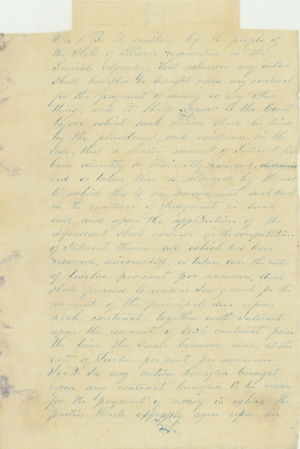 Sec 1 Be it enacted by the people of
the State of Illinois represented in the
General Assembly, that whenever any action
shall hereafter be brought upon any contract
for the payment of money or any other
thing, and it shall appear to the Court
before which such action shall be tried
by the pleadings and evidence in the
case, that a greater amount of interest has
been directly or indirectly reserved, discoun
ted or taken than is allowed by the act
to which this is an amendment such Court
in the rendition of Judgment in such
case and upon the application of the
defendant shall reduce in the computation
of Interest thereon all which has been
reserved, discounted or taken over the rate
of twelve per cent per annum, And
shall proceed to render Judgment for the
amount of the principal due upon
such contract together with Interest
upon the amount of such contract from
the time the same became due at the
rate of Twelve per cent per annum
Sec 2. In any action hereafter brought
upon any contract hereafter to be made
for the payment of money in which the
parties thereto agree upon an